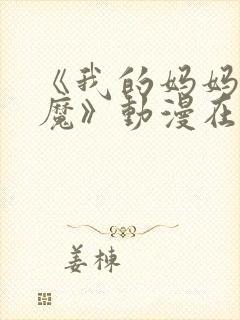 《我的妈妈
魔》動漫在
姜栋